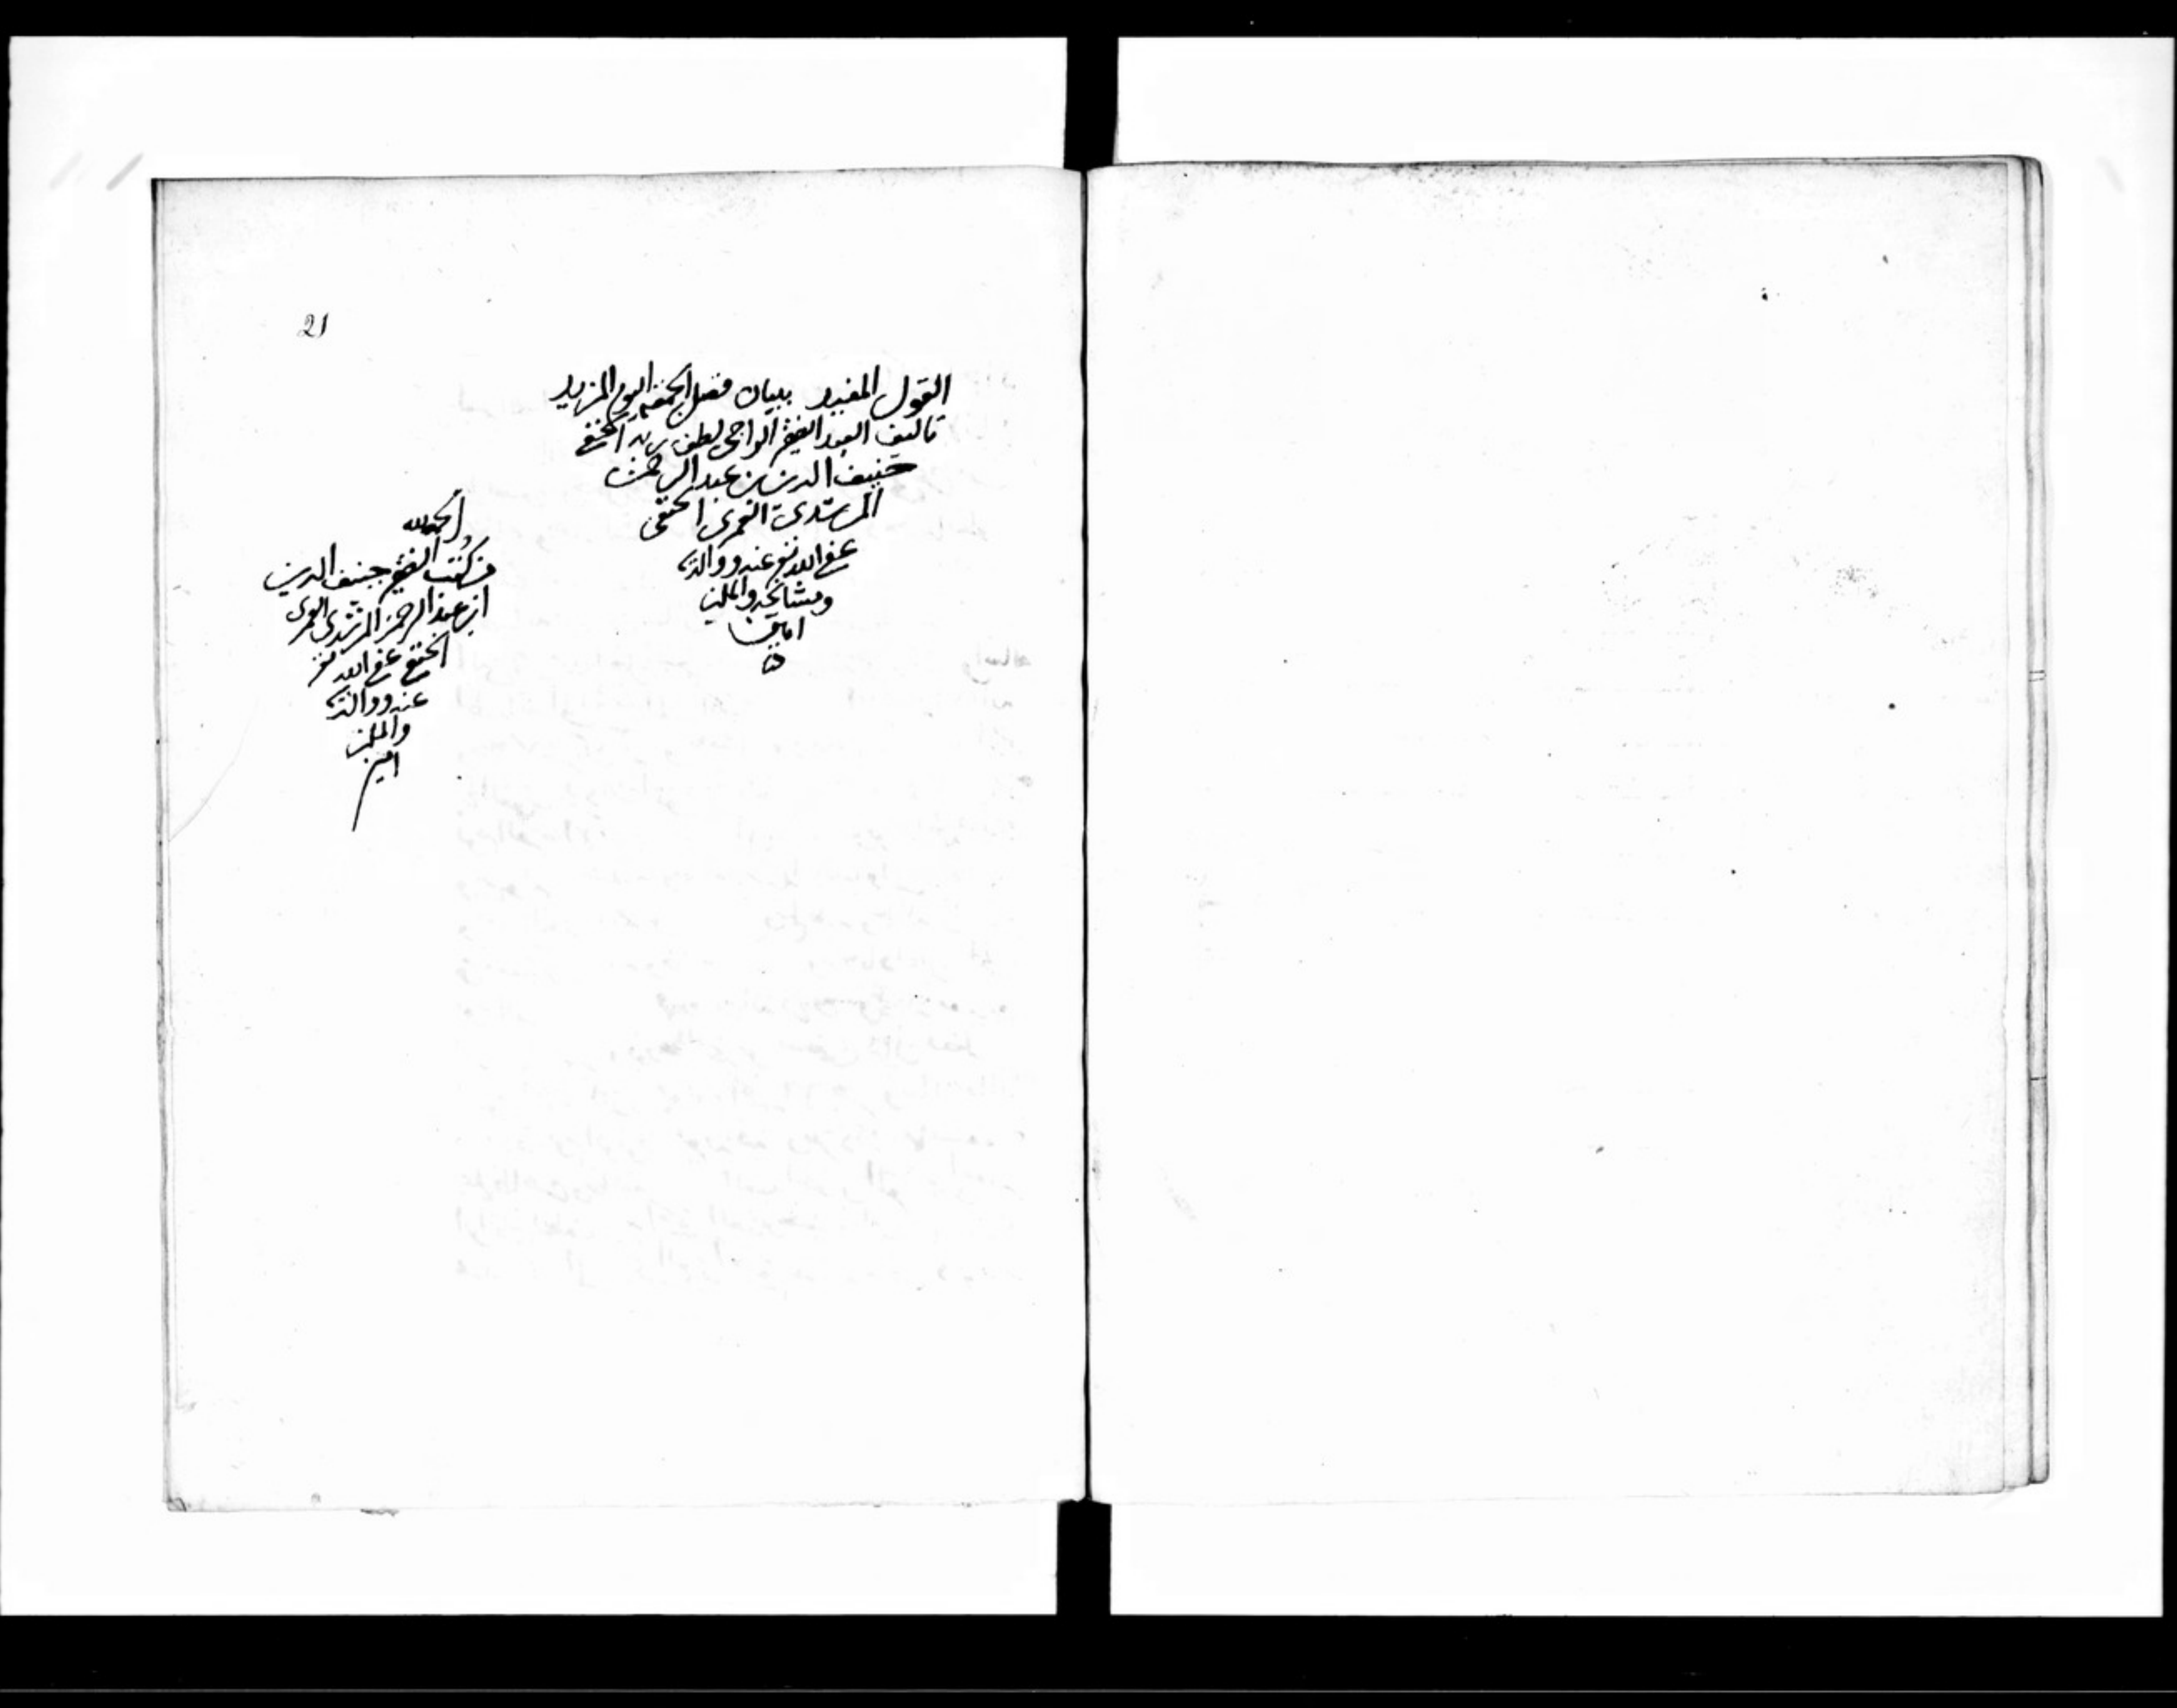 21
القول المفيد ببيان فضل الجمعة اليوم المزيد
تاليف العبد الفقير الراجي لطف ربه الخفي
حنيف الدين بن عبد الرحمن
المرشدي العمري الحنفي
عفى الله تع عنه ووالديه
ومشايخه والمسلمين
امين
الحمد لله
من كتب الفقير حنيف الدين
ابن عبد الرحمن المرشدي العمري
الحنفي عفى الله تع
عنه ووالديه
والمسلمين
امين